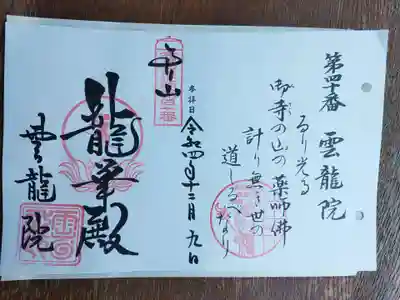 第四十番 雲龍院
るり光る
御寺の山の薬師佛
計り無き世の
道しるべなり
奉拝日
令和四年十二月九日
龍華殿
雲龍院